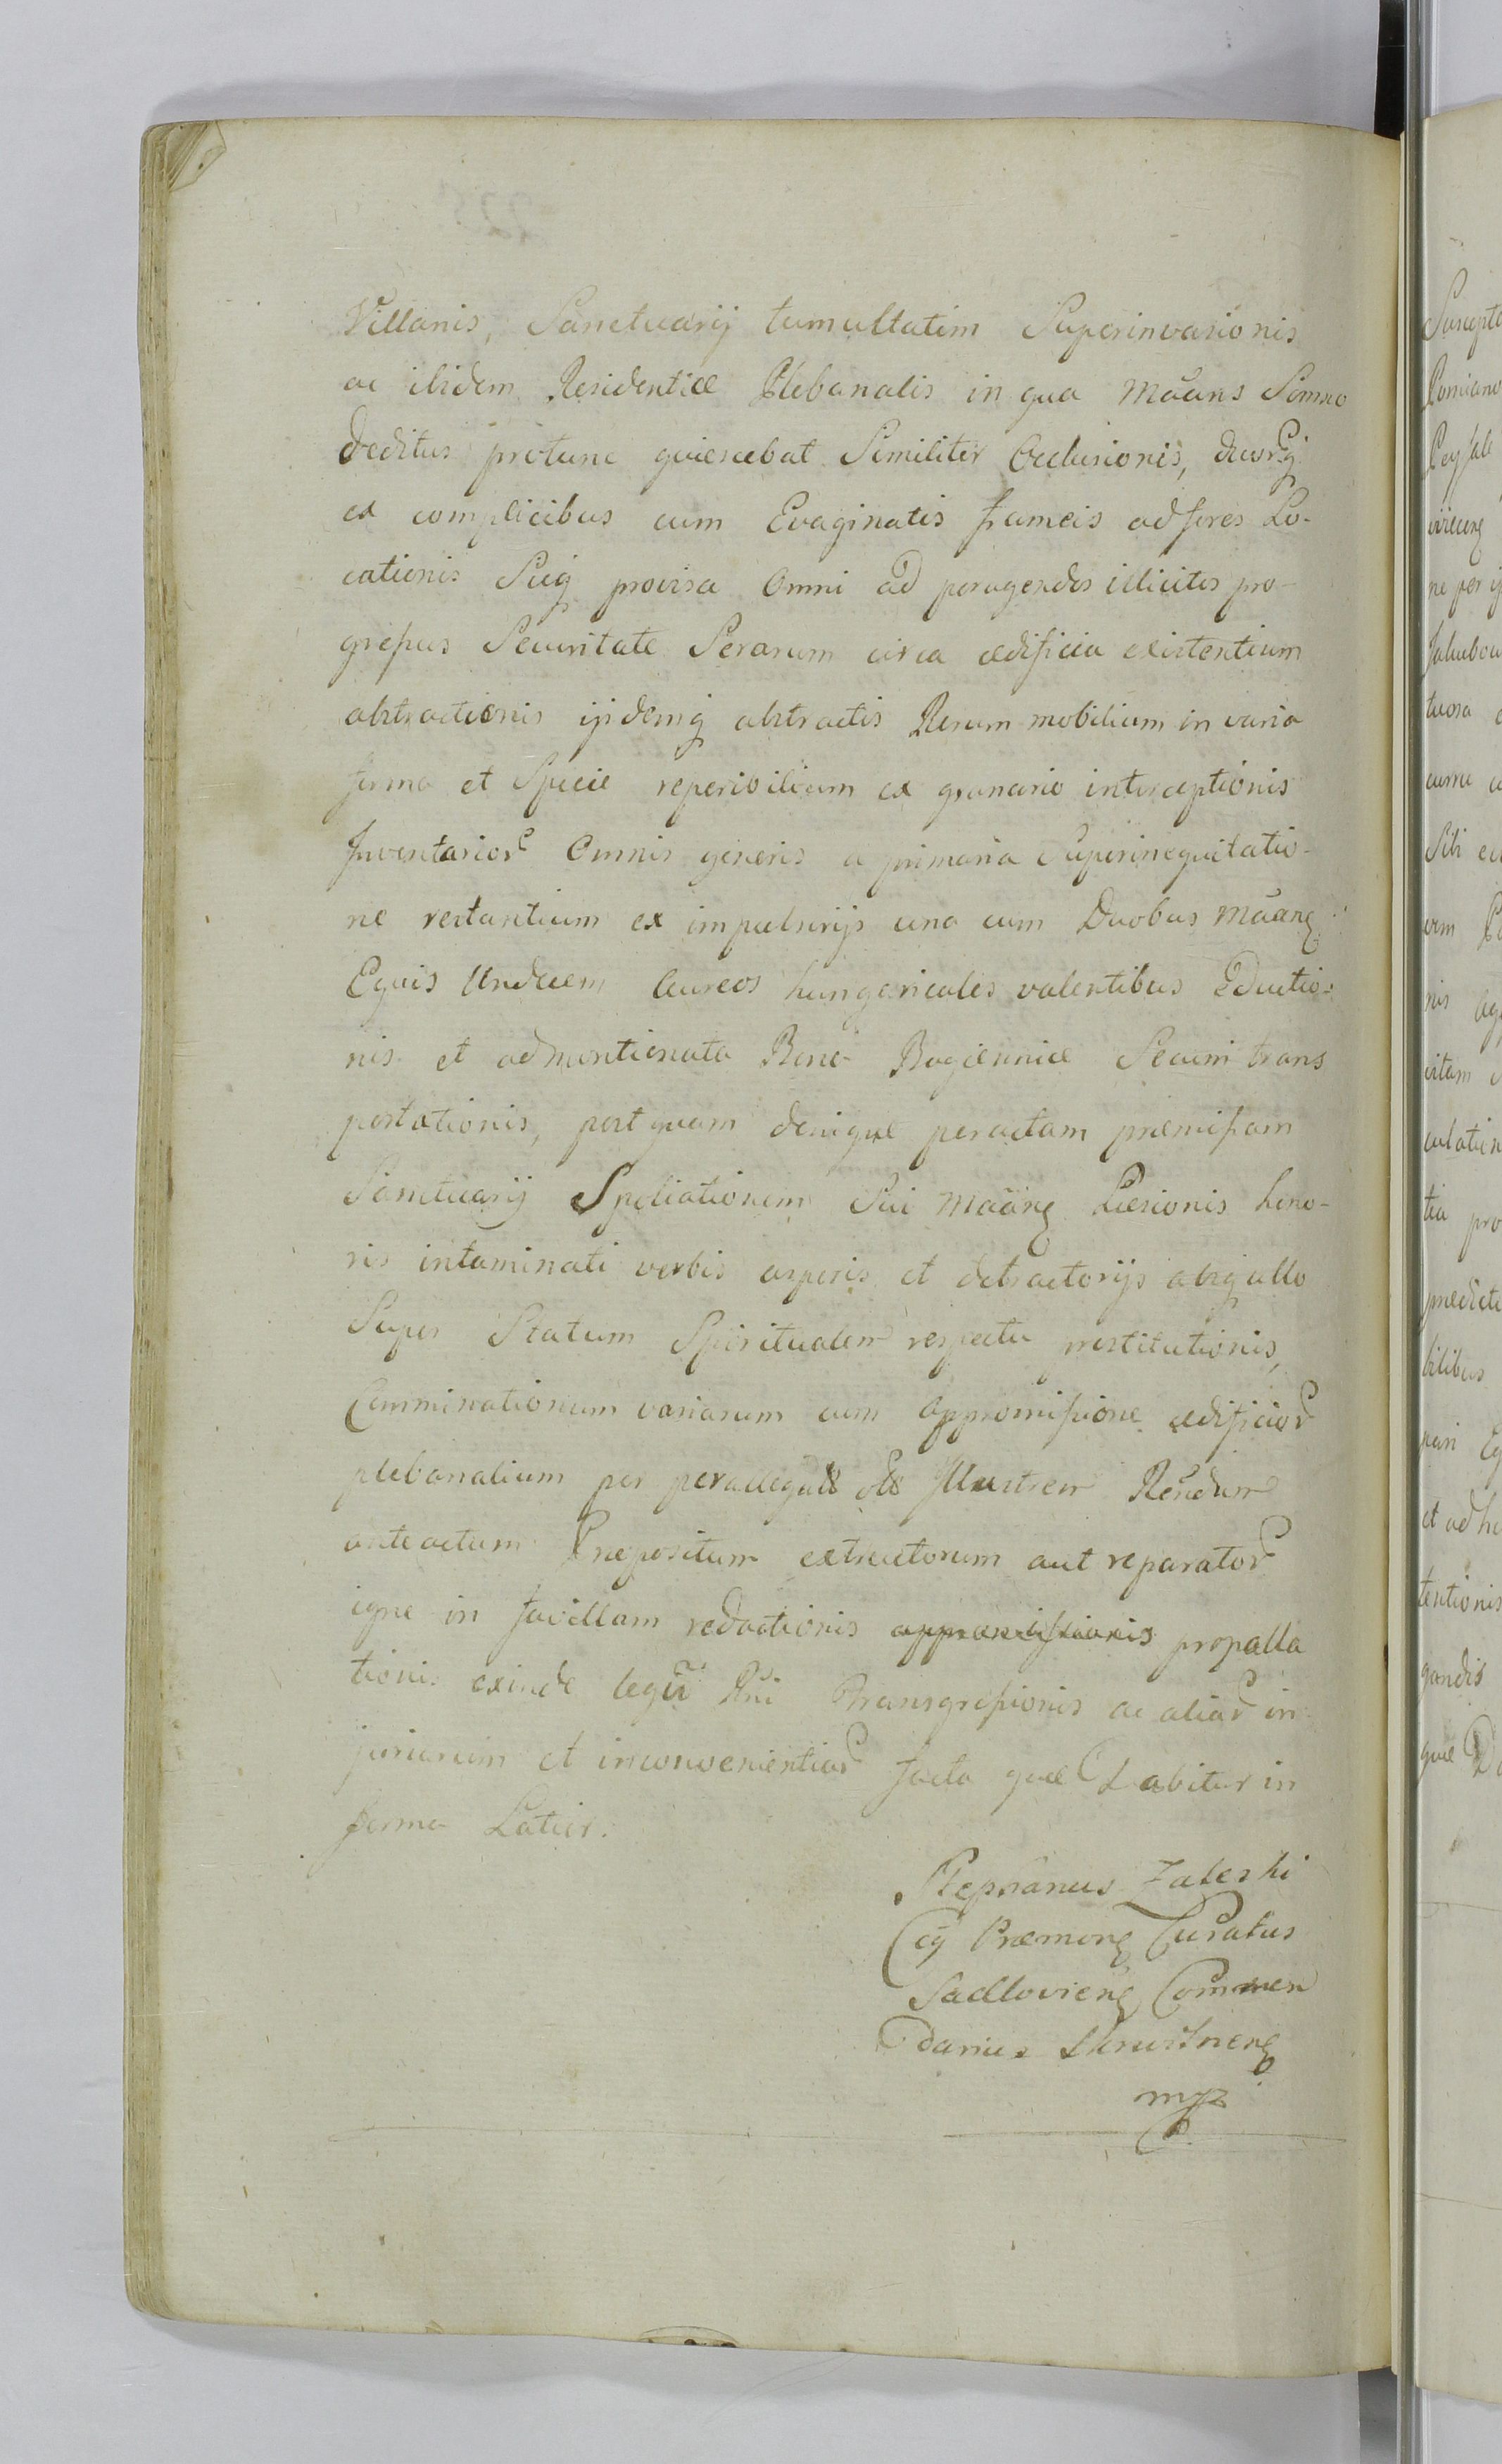 Villanis, Sanctuarij tumultatim Superinvasionis
ac ibidem Residentiæ Plebanalis in qua Maans Somno
deditus protunc quiescebat Similiter Occlusionis, duorq
ex complicibus cum Evaginatis frameis ad fores Lo-
cationis Sicq provisa Omni ad peragendos illicitos pro-
gressus Securitate Serarum circa ædificia existentium
abstractionis ijsdemq abstractis Rerum mobilium in varia
forma et Specie reperibilium ex granario interceptionis
Inventarior Omnis generis a primaria Superinequitatio-
ne restantium ex impulsorijs una cum Duobus Maang
Equis Undecem Aureos hungaricales valentibus Eductio-
nis et ad mentionata Bona Bogienniæ Secum trans
portationis, post quam denique peractam præmissam
Sanctuarij Spoliationem Sui Maang Læsionis hono-
ris intaminati verbis asperis et detractorijs absq ullo
Super Statum Spiritualem respectu prostitutionis,
Comminationum variarum cum appromissione ædificior
plebanalium per perallegat olim Illustrem Rendum
anteactum Præpositum extructorum aut reparator
igne in favillam redactionis appromissionis propalla
tionis exinde legum Rni transgressionis ac aliar in-
juriarum et inconvenientiar facta quæ Labitur in
forma Latior.
Stephanus Zaleski
Cg Præmong Curatus
Sadlovieng Commen
darius Skrusneng
mpp
Suscepto
tuosa
vim
vitam
pro
prædicti
bilibus
pari
tentionis
gandis
quæ